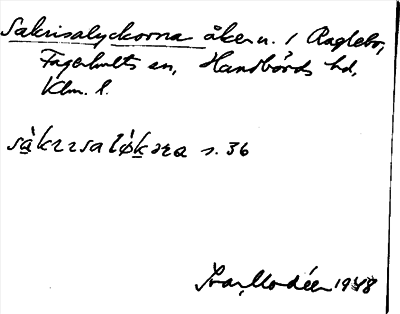 Sakrisalyckorna åkern. i Raglebo,
Fagerhults sn, Handbörds hd,
Klm. l.
sàkrɩsaløkəra s. 36
Ivar Modéer 1948